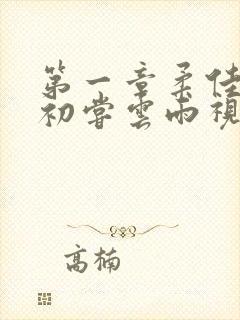 第一章柔佳
初尝云雨视
高楠